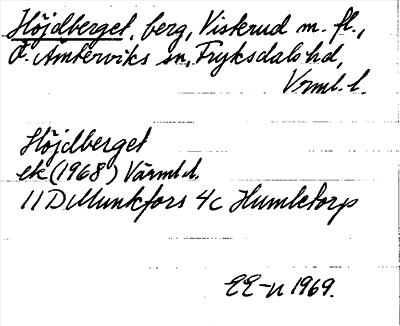 Höjdberget, berg, Viskerud m. fl.,
Ö. Ämterviks sn, Fryksdals hd,
Vrml. l.
Höjdberget
ek (1968) Värml. l.
11 D Munkfors 4c Humletorp
EE-n 1969.